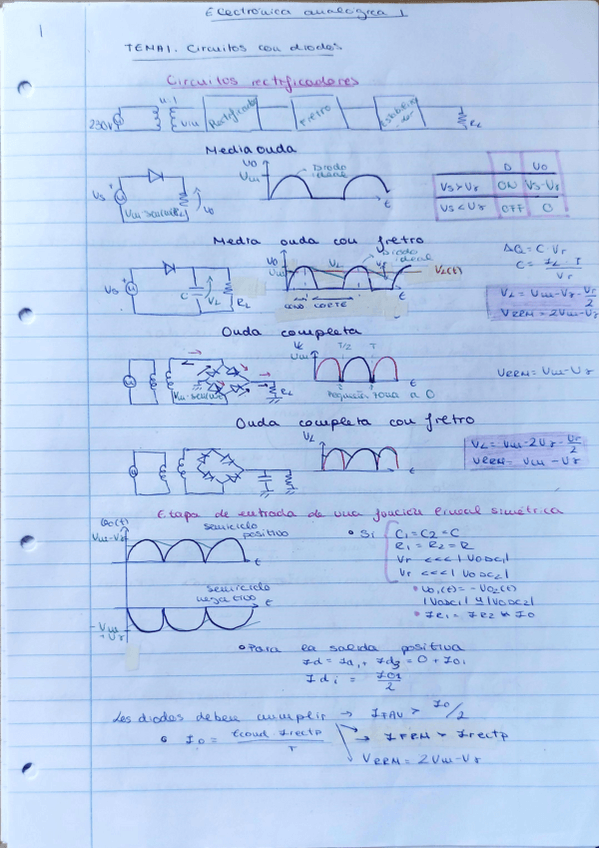 Electrónica analógica 1
1
TEMA1. Circuitos con diodos
Circuitos rectificadores
230V n:1 Vin Rectificador Filtro Estabiliza-dor RL
Media onda
Vs Vm senwt Vo
Vo Vm Diodo ideal t
D Vo
Vs>Vγ ON Vs-Vγ
Vs<Vγ OFF 0
Media onda con filtro
Vs C VL RL
Vo Vm VL Vr Diodo ideal VL(t) t
COND CORTE
ΔQ = C·Vr
C = IL·T / Vr
VL = Vm-Vγ-Vr/2
VRRM = 2Vm-Vγ
Onda completa
Vm senwt RL
VL Vm T/2 T t
Pequeña zona a 0
VRRM = Vm-Vγ
Onda completa con filtro
VL t
VL = Vm-2Vγ-Vr/2
VRRM = Vm-Vγ
Etapa de entrada de una función lineal simétrica
Vo(t)
Vm-Vγ semiciclo positivo t
semiciclo negativo t
-Vm+Vγ
• Si C1=C2=C
R1=R2=R
Vr <<< |VoDC1|
Vr <<< |VoDC2|
• Vo1(t)=-Vo2(t)
|VoDC1| ≈ |VoDC2|
• IR1 = IR2 ≈ Io
• Para la salida positiva
Id = Id1 + Id3 = 0 + Io1
Idi = Io1/2
Los diodos deben cumplir → IFAV > Io/2
• Io = tcond Irectp / T → IFRM > Irectp
VRRM = 2Vm-Vγ